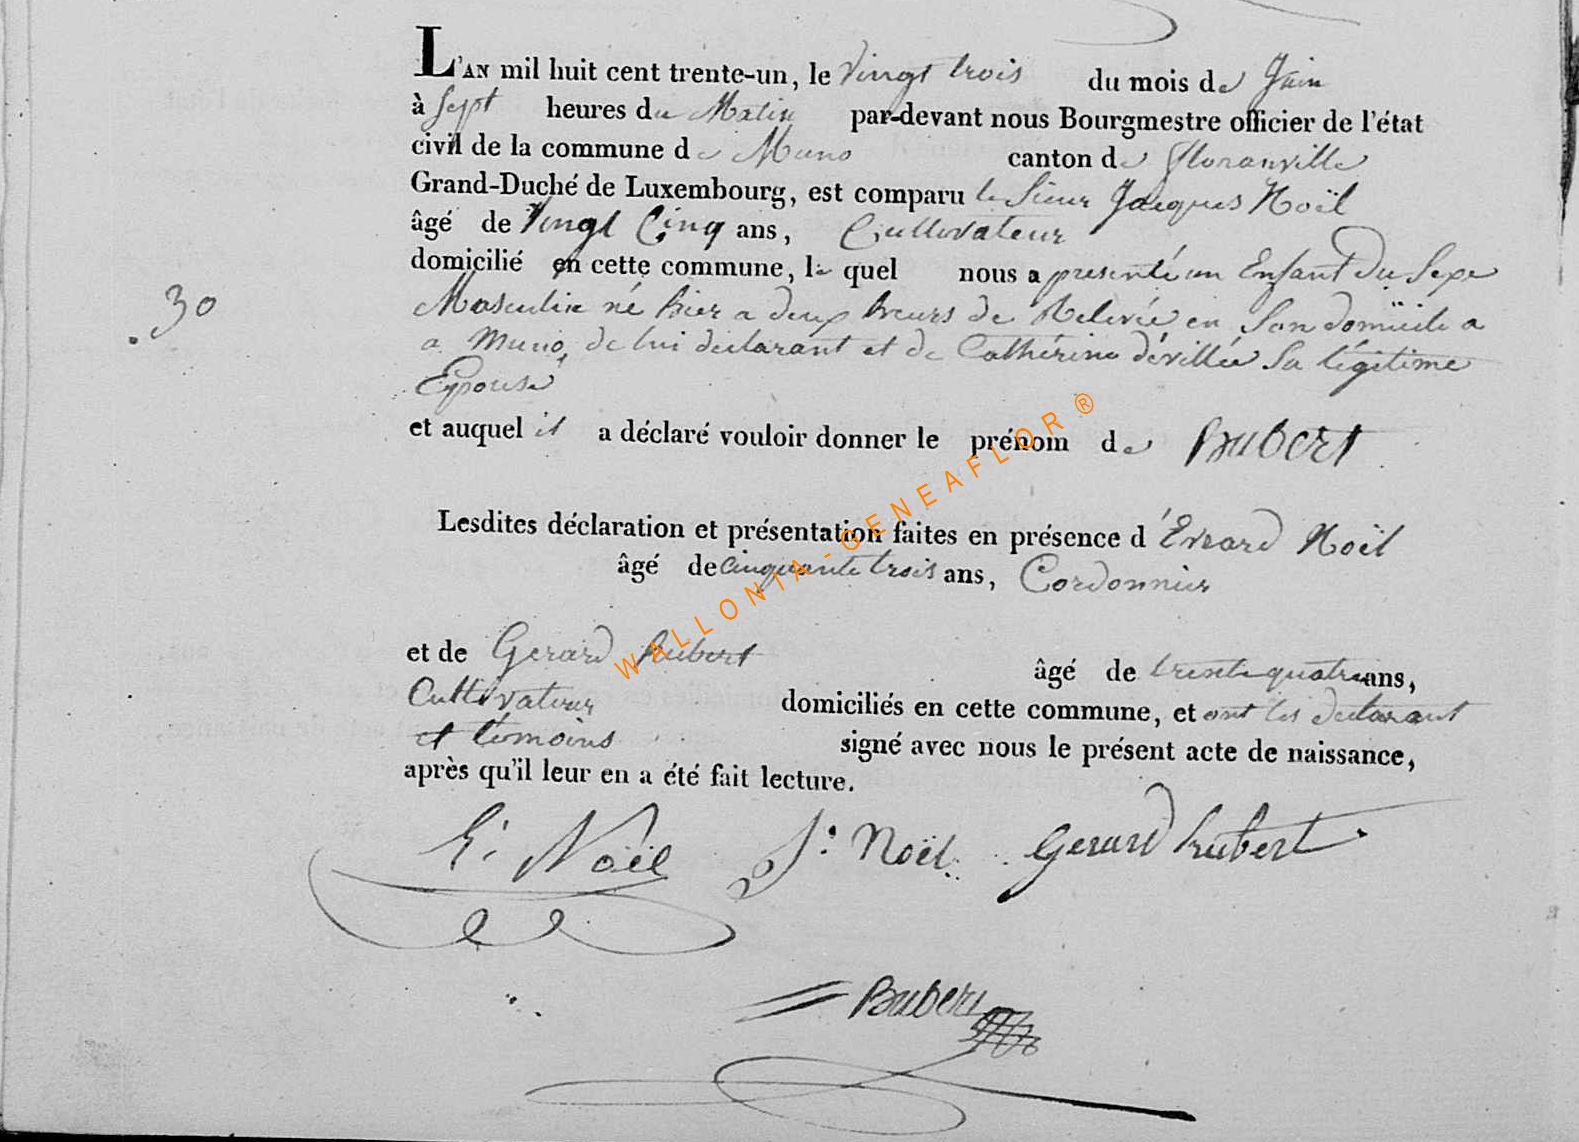 L'AN mil huit cent trente-un, le Vingt trois du mois de Juin
à Sept heures du Matin par-devant nous Bourgmestre officier de l'état
civil de la commune de Muno canton de Floranville
Grand-Duché de Luxembourg, est comparu le Sieur Jacques Noël
âgé de Vingt Cinq ans, Cultivateur
domicilié en cette commune, le quel nous a presenté un Enfant Du Sexe
30
Masculin né hier a deux heurs de Relevée en Son domicile a
a Muno, de lui declarant et de Cathérine dévillée Sa légitime
Epouse
et auquel il a déclaré vouloir donner le prénom de Hubert
Lesdites déclaration et présentation faites en présence d'Evrard Noël
âgé de cinquante trois ans, Cordonnier
et de Gerard hubert âgé de trente quatre ans,
Cultivateur domiciliés en cette commune, et ont les declarant
et témoins signé avec nous le présent acte de naissance,
après qu'il leur en a été fait lecture.
E: Noël J: Noël Gerard hubert
Hubert
WALLONIA-GENEAFLOR®